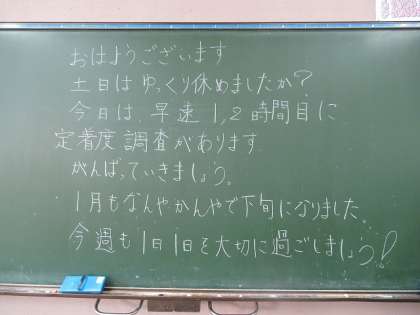 おはようございます
土日はゆっくり休めましたか?
今日は、早速1,2時間目に
定着度調査があります
がんばっていきましょう。
1月もなんやかんやで下旬になりました。
今週も1日1日を大切に過ごしましょう!